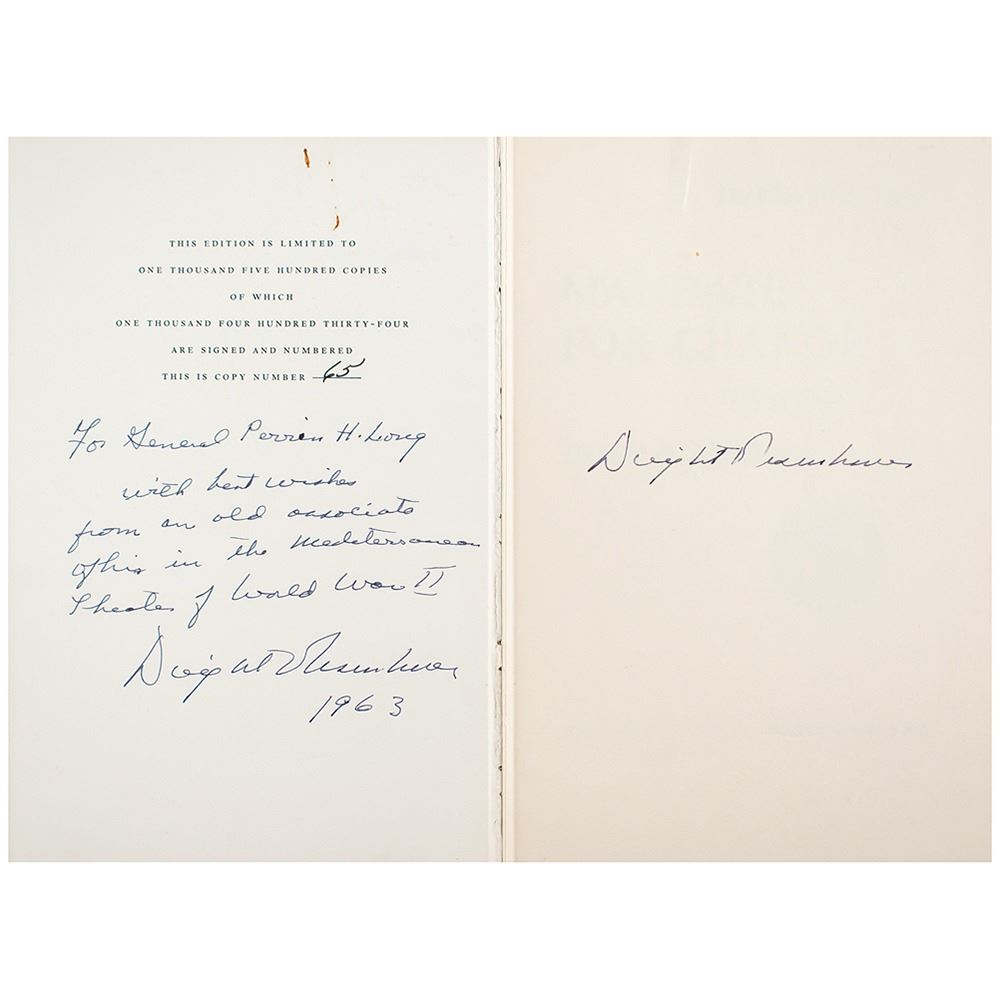 THIS EDITION IS LIMITED TO
ONE THOUSAND FIVE HUNDRED COPIES
OF WHICH
ONE THOUSAND FOUR HUNDRED THIRTY-FOUR
ARE SIGNED AND NUMBERED
THIS IS COPY NUMBER 65
For General Perrin H. Long
with best wishes
from an old associate
of his in the Mediterranean
Theater of World War II
Dwight D Eisenhower
1963
Dwight D Eisenhower